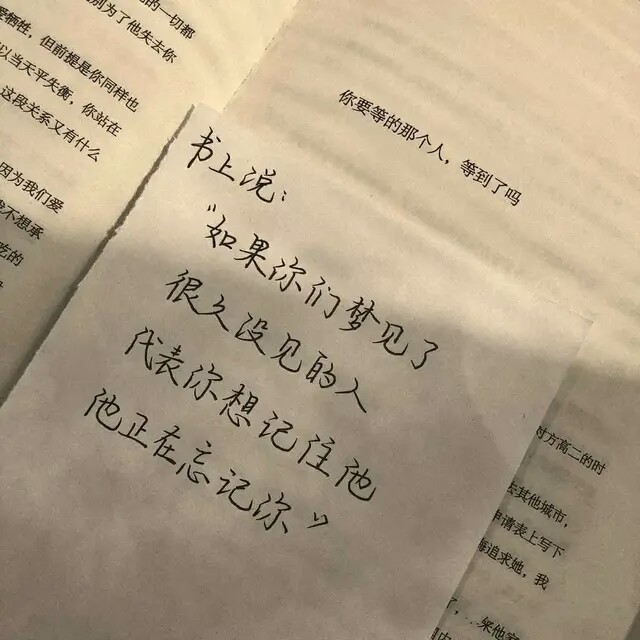 的一切都
别为了他失去你
牺牲,但前提是你同样也
以当天平失衡,你站在
这段关系又有什么
因为我们爱
不想承
吃的
你要等的那个人,等到了吗
书上说:
“如果你们梦见了
很久没见的人
代表你想记住他
他正在忘记你”
对方高二的时
去其他城市,
申请表上写下
海追求她,我